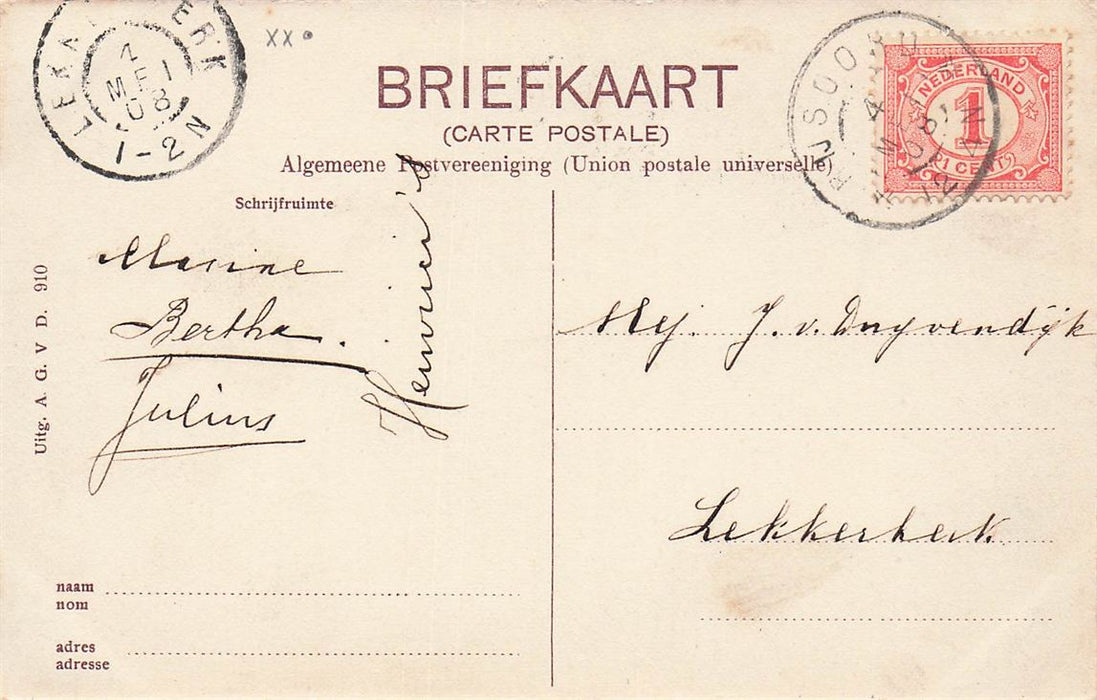 LEKKERKERK
4 MEI 08
1-2N
XX
BRIEFKAART
(CARTE POSTALE)
Algemeene Postvereeniging (Union postale universelle)
NEDERLAND
1
1 CENT
4
08
12
N
Schrijfruimte
Marine
Bertha.
Julius
Uitg. A. G. V D. 910
Mej. J. v. Duyvendijk
Lekkerkerk
naam
nom
adres
adresse